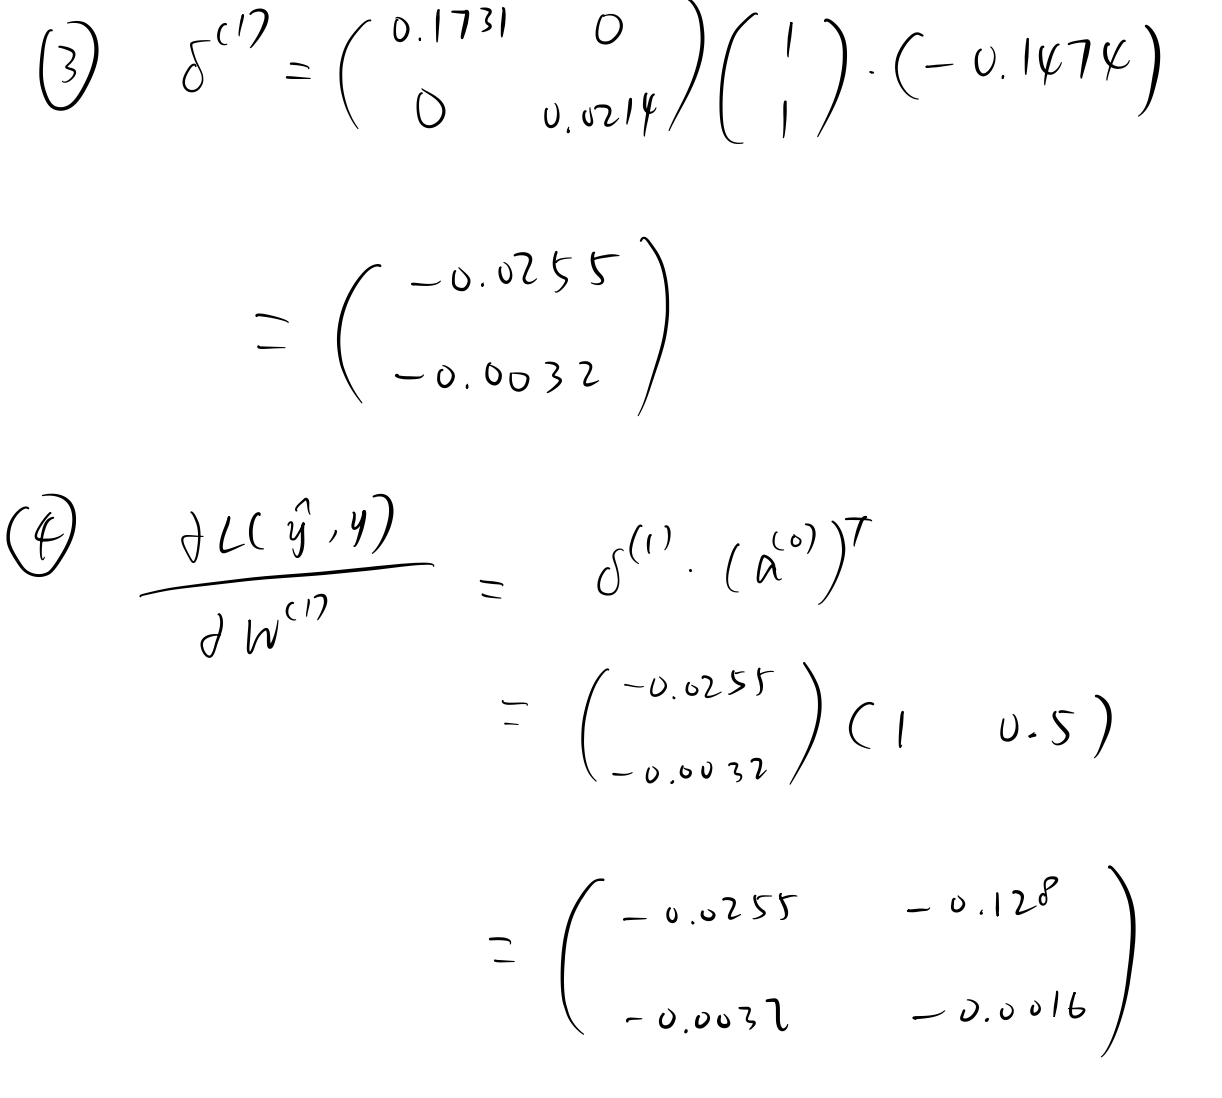 ③ δ^(1) = ( 0.1731 0 ; 0 0.0214 ) ( 1 ; 1 ) · (-0.1474)
= ( -0.0255 ; -0.0032 )
④ ∂L(ŷ, y) / ∂W^(1) = δ^(1) · (a^(0))^T
= ( -0.0255 ; -0.0032 ) ( 1 0.5 )
= ( -0.0255 -0.128 ; -0.0032 -0.0016 )